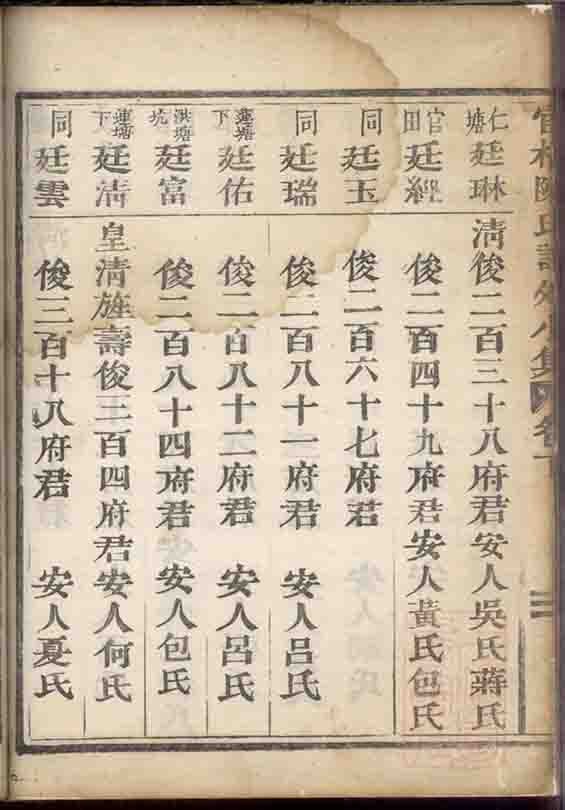 官村陳氏譜外小集 卷
仁塘 廷琳 清俊二百三十八府君 安人吳氏蔣氏
官田 廷經 俊二百四十九府君 安人黃氏包氏
同 廷玉 俊二百六十七府君
同 廷瑞 俊二百八十一府君 安人呂氏
蓮塘下 廷佑 俊二百八十二府君 安人呂氏
洪塘坑 廷富 俊二百八十四府君 安人包氏
蓮塘下 廷清 皇清旌壽俊三百四府君 安人何氏
同 廷雲 俊三百十八府君 安人夏氏